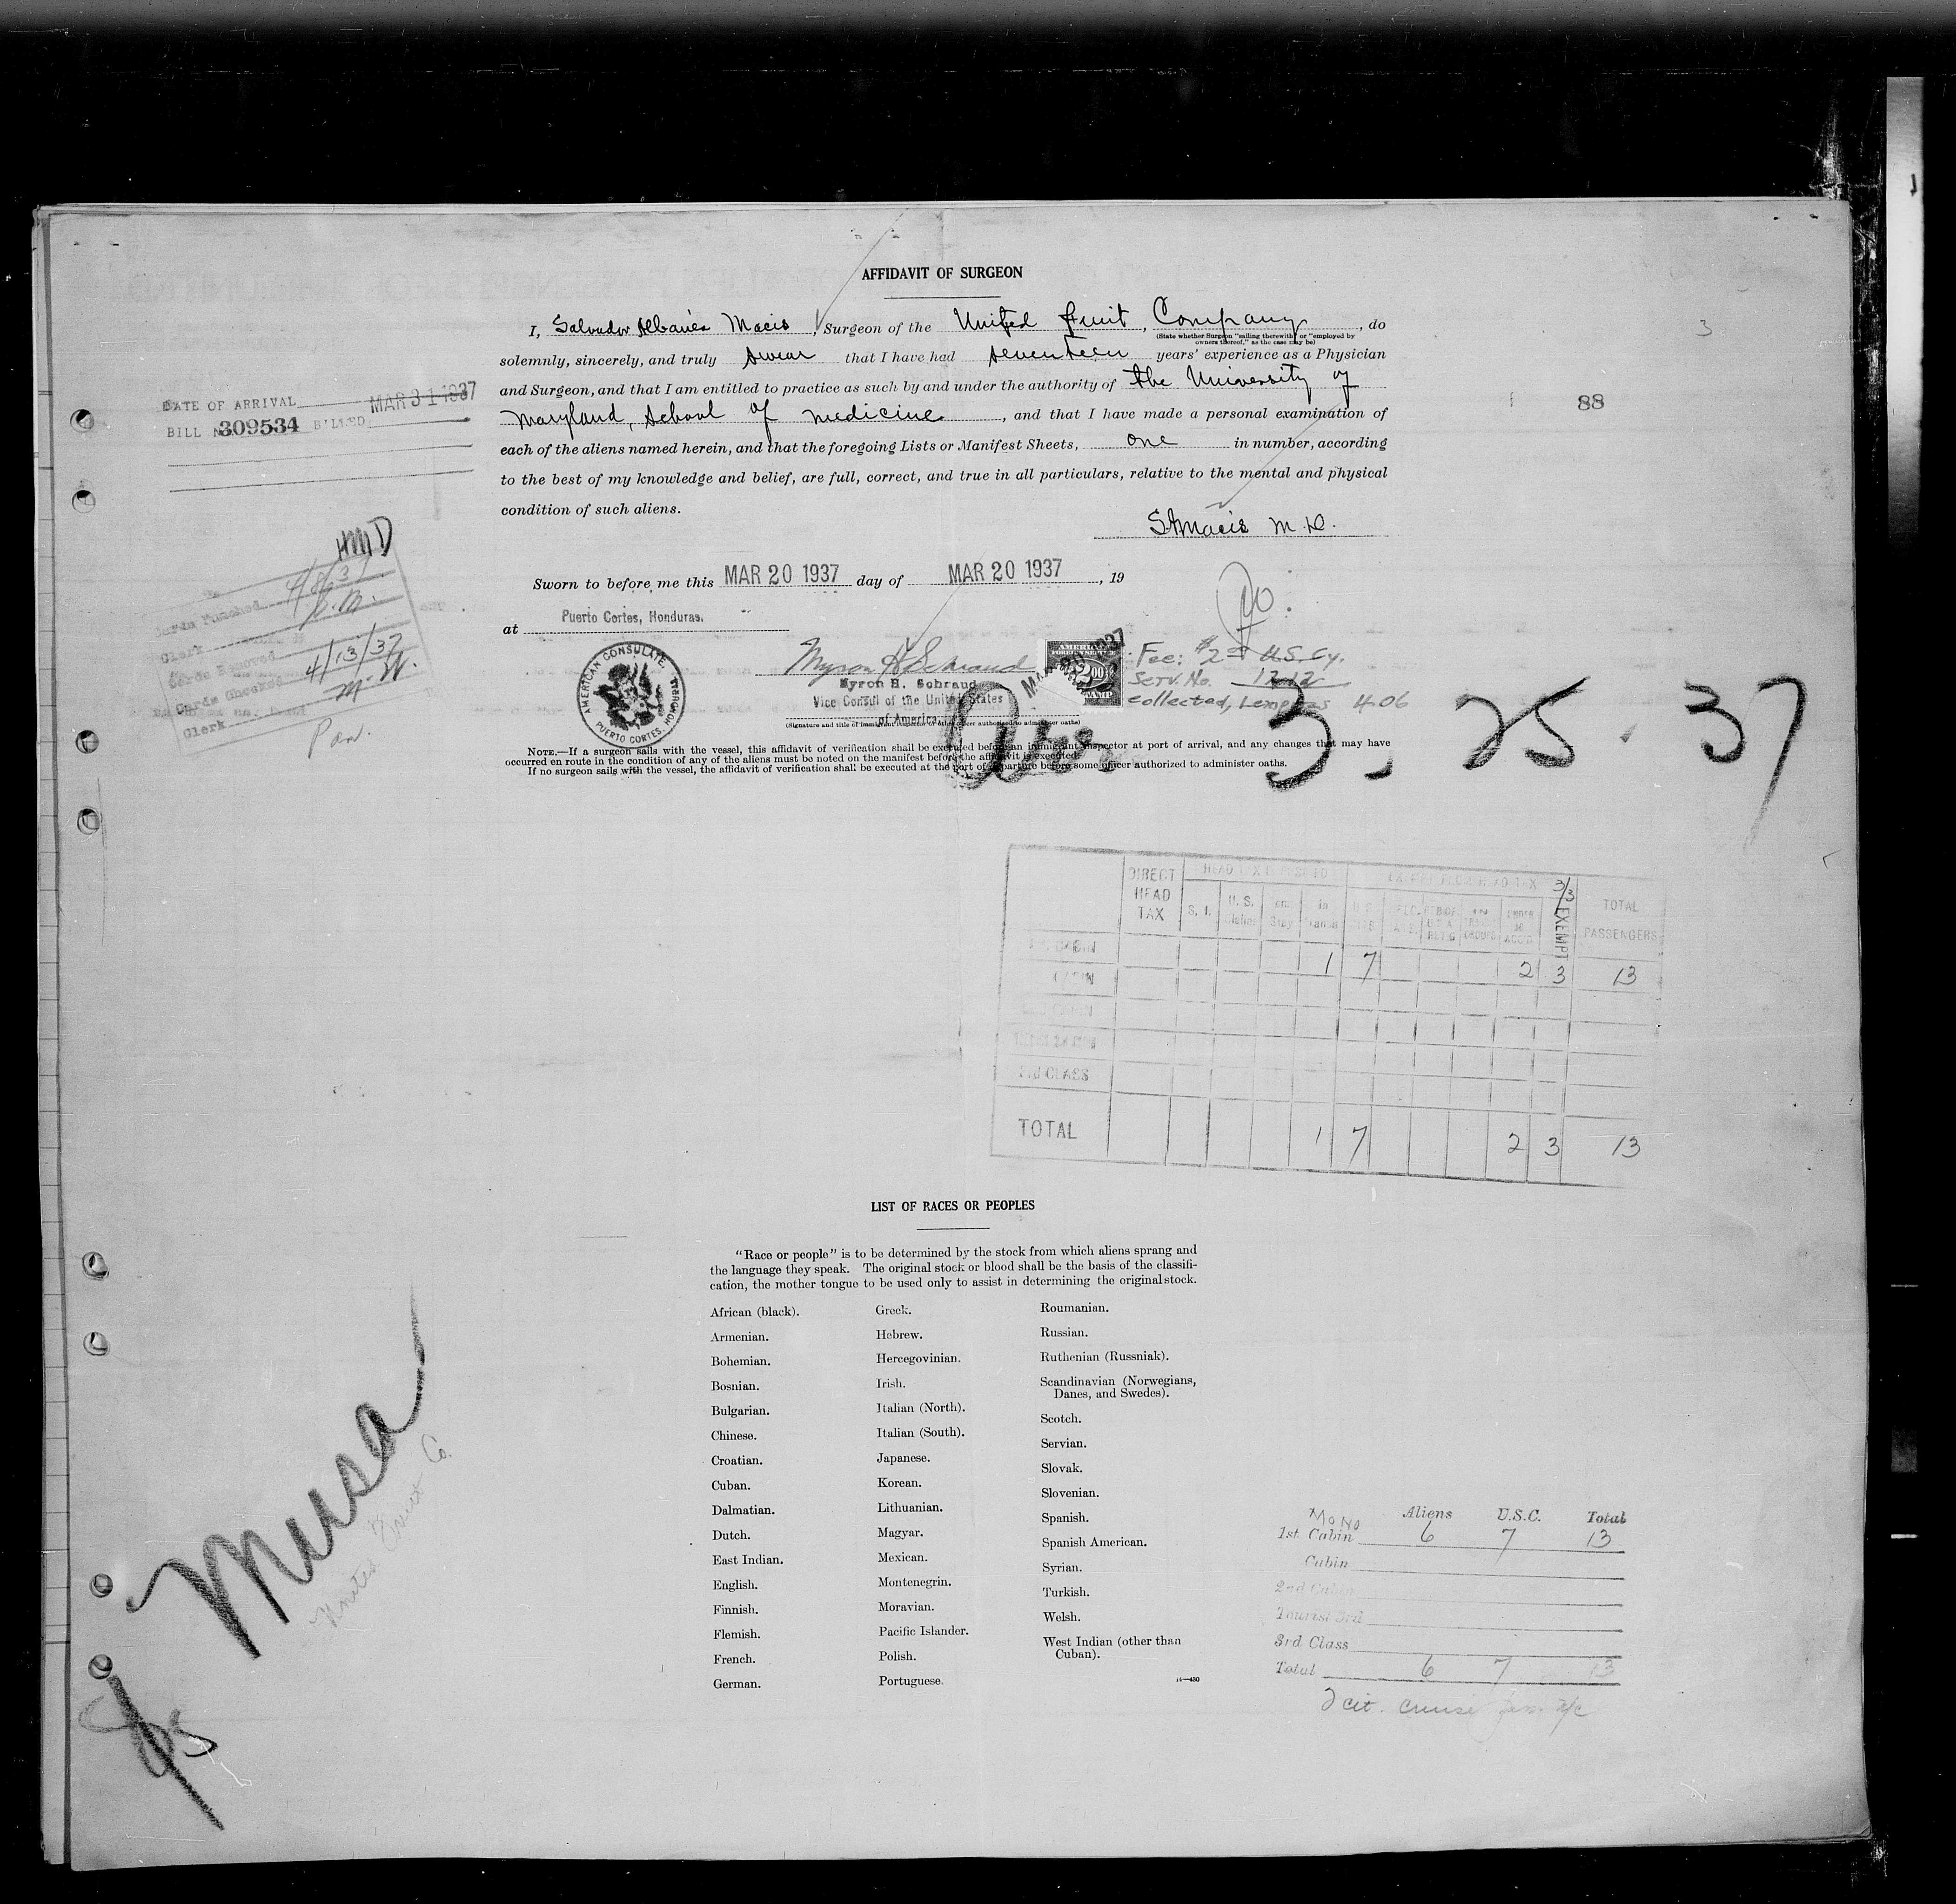 AFFIDAVIT OF SURGEON
I, Salvador Albanés Macis, Surgeon of the United Fruit Company, do
(State whether Surgeon "sailing therewith" or "employed by owners thereof," as the case may be)
solemnly, sincerely, and truly swear that I have had seventeen years' experience as a Physician
and Surgeon, and that I am entitled to practice as such by and under the authority of the University of
Maryland, School of medicine, and that I have made a personal examination of
each of the aliens named herein, and that the foregoing Lists or Manifest Sheets, one in number, according
to the best of my knowledge and belief, are full, correct, and true in all particulars, relative to the mental and physical
condition of such aliens.
S.A. Macis M.D.
Sworn to before me this MAR 20 1937 day of MAR 20 1937, 19
at Puerto Cortes, Honduras.
AMERICAN CONSULATE.
PUERTO CORTES, HONDURAS
Myron H. Schraud
Myron H. Schraud
Vice Consul of the United States
of America
(Signature and title of immigrant inspector or other officer authorized to administer oaths)
Fee: $2 00 U.S. Cy.
Serv. No. 1212
collected, Lempiras 4.06
NOTE.—If a surgeon sails with the vessel, this affidavit of verification shall be executed before an immigrant inspector at port of arrival, and any changes that may have
occurred en route in the condition of any of the aliens must be noted on the manifest before the affidavit is executed.
If no surgeon sails with the vessel, the affidavit of verification shall be executed at the port of departure before some officer authorized to administer oaths.
3. 25. 37
DATE OF ARRIVAL MAR 31 1937
BILL No. 309534 BILLED
HMD
Cards Punched 4/8/37
Clerk
Cards Checked 4/13/37
Clerk M.W.
88
3
DIRECT HEAD TAX
TOTAL PASSENGERS
3/3 EXEMPT
CABIN 1 7 2 3 13
3RD CLASS
TOTAL 1 7 2 3 13
LIST OF RACES OR PEOPLES
"Race or people" is to be determined by the stock from which aliens sprang and
the language they speak. The original stock or blood shall be the basis of the classifi-
cation, the mother tongue to be used only to assist in determining the original stock.
African (black).
Armenian.
Bohemian.
Bosnian.
Bulgarian.
Chinese.
Croatian.
Cuban.
Dalmatian.
Dutch.
East Indian.
English.
Finnish.
Flemish.
French.
German.
Greek.
Hebrew.
Hercegovinian.
Irish.
Italian (North).
Italian (South).
Japanese.
Korean.
Lithuanian.
Magyar.
Mexican.
Montenegrin.
Moravian.
Pacific Islander.
Polish.
Portuguese.
Roumanian.
Russian.
Ruthenian (Russniak).
Scandinavian (Norwegians,
Danes, and Swedes).
Scotch.
Servian.
Slovak.
Slovenian.
Spanish.
Spanish American.
Syrian.
Turkish.
Welsh.
West Indian (other than
Cuban).
Musa
United Fruit Co.
Mono Aliens U.S.C. Total
1st Cabin 6 7 13
Cabin
2nd Cabin
Tourist 3rd
3rd Class
Total 6 7 13